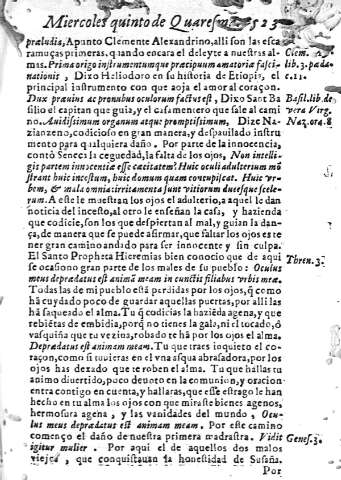 Miercoles quinto de Quaresma. 523
præludia, Apunto Clemente Alexandrino, alli son las esca
ramuças primeras, quando encara el deleyte a nuestras al-
mas. Prima origo instrumentumque præcipuum amatoria fasci-
nationis, Dixo Heliodoro en su historia de Etiopis, el
principal instrumento con que aoja el amor al coraçon.
Dux præuius ac pronubus oculorum factus est, Dixo Sant Ba
silio el capitan que guia, y el casamentero que sale al cami
no. Auidissimum organum atque promptissimum, Dize Na-
zianzeno, codicioso en gran manera, y despauilado instru
mento para qualquiera daño. Por parte de la innocencia,
contò Seneca la ceguedad, la falta de los ojos, Non intelli-
gis partem innocentiæ esse cæcitatem? Huic oculi adulterium mõ
strant huic incestum, huic domum quam concupiscat. Huic vr-
bem, & mala omnia irritamenta sunt vitiorum ducesque scele-
rum. A este le muestran los ojos el adulterio, a aquel le dan
noticia del incesto, al otro le enseñan la casa, y hazienda
que codicie, son los que despiertan al mal, y guian la dan-
ça, de manera que se puede afirmar, que faltar los ojos es te
ner gran camino andado para ser innocente y sin culpa.
El Santo Propheta Hieremias bien conocio que de aqui
se ocasiono gran parte de los males de su pueblo: Oculus
meus deprædatus est animã meam in cunctis filiabus vrbis meæ.
Todas las de mi pueblo està perdidas por los ojos, q̃ como
hã cuydado poco de guardar aquellas puertas, por alli las
hã saqueado el alma. Tu q̃ codicias la haziẽda agena, y que
rebiẽtas de embidia, porq̃ no tienes la gala, ni el tocado, ò
vasquiña que tu vezina, robado te hã por los ojos el alma.
Deprædatus est animam meam. Tu que traes inquieto el co-
raçon, como si tuuieras en el vna asqua abrasadora, por los
ojos has dexado que te roben el alma. Tu que hallas tu
animo diuertido, poco deuoto en la comunion, y oracion
entra contigo en cuenta, y hallaras, que esse estrago le han
hecho en tu alma los ojos con que miraste bienes agenos,
hermosura agena, y las vanidades del mundo, Ocu-
lus meus deprædatus est animam meam. Por este camino
començo el daño de nuestra primera madrastra. Vidit
igitur mulier. Por aqui el de aquellos dos malos
viejos, que conquistauan la honestidad de Susana.
Por
Clem.
lib. 3. pæda
c. 11.
Basil. lib. de
vera Virg.
Naz. ora. 8
Thren. 3.
Genes. 3.